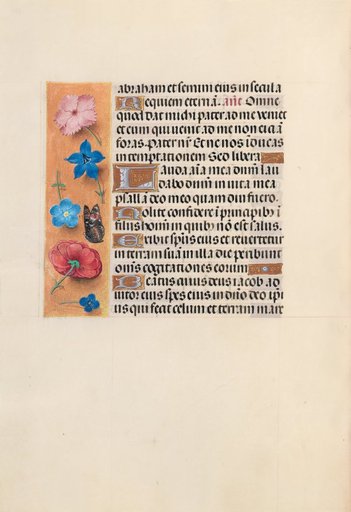 abraham et semini eius in secula
Requiem eternā. añe Omne
quod dat michi pater ad me veniet
et eum qui venit ad me non eiciā
foras. pater nr̄. Et ne nos iducas
in temptationem Sed libera
Lauda aīa mea dnm̄ lau
dabo dnm̄ in vita mea
psallā deo meo quam diu fuero.
Nolite confidere ī principibꝫ ī
filiis hominū in quibꝫ nō est salus.
Exibit spūs eius et revertetur
in terram suā in illa die peribunt
om̄s cogitationes eorum
Beatus cuius deus iacob ad
iutor eius spes eius in dn̄o deo ip̄i
us qui fecit celum et terram mare